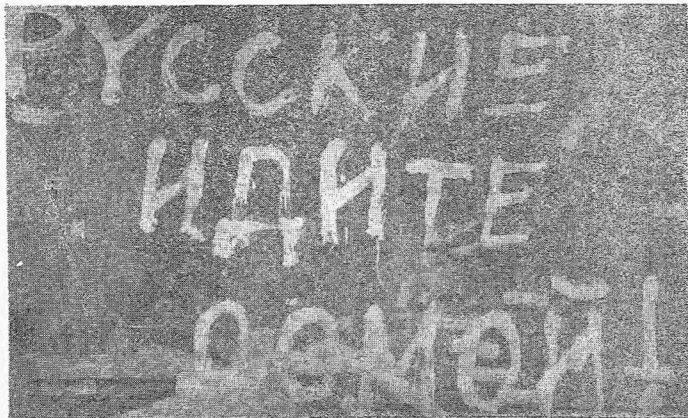 РУССКИЕ
ИДИТЕ
ДОМОЙ!